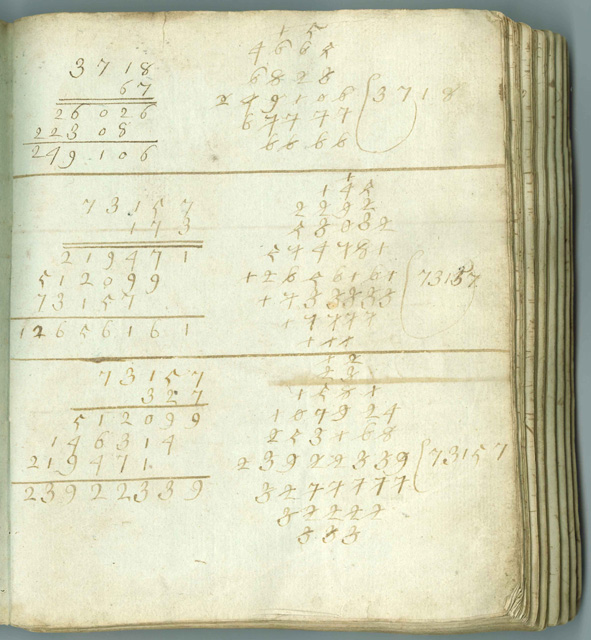 3718
67
26026
22308
249106
15
4665
6828
249106 (3718
67777
6666
73157
173
219471
512099
73157
12656161
1
145
2292
58082
544781
12656161 (73157
1733333
17777
111
73157
327
512099
146314
219471
23922339
12
22
1581
187924
253168
23922339 (73157
3277777
32222
333